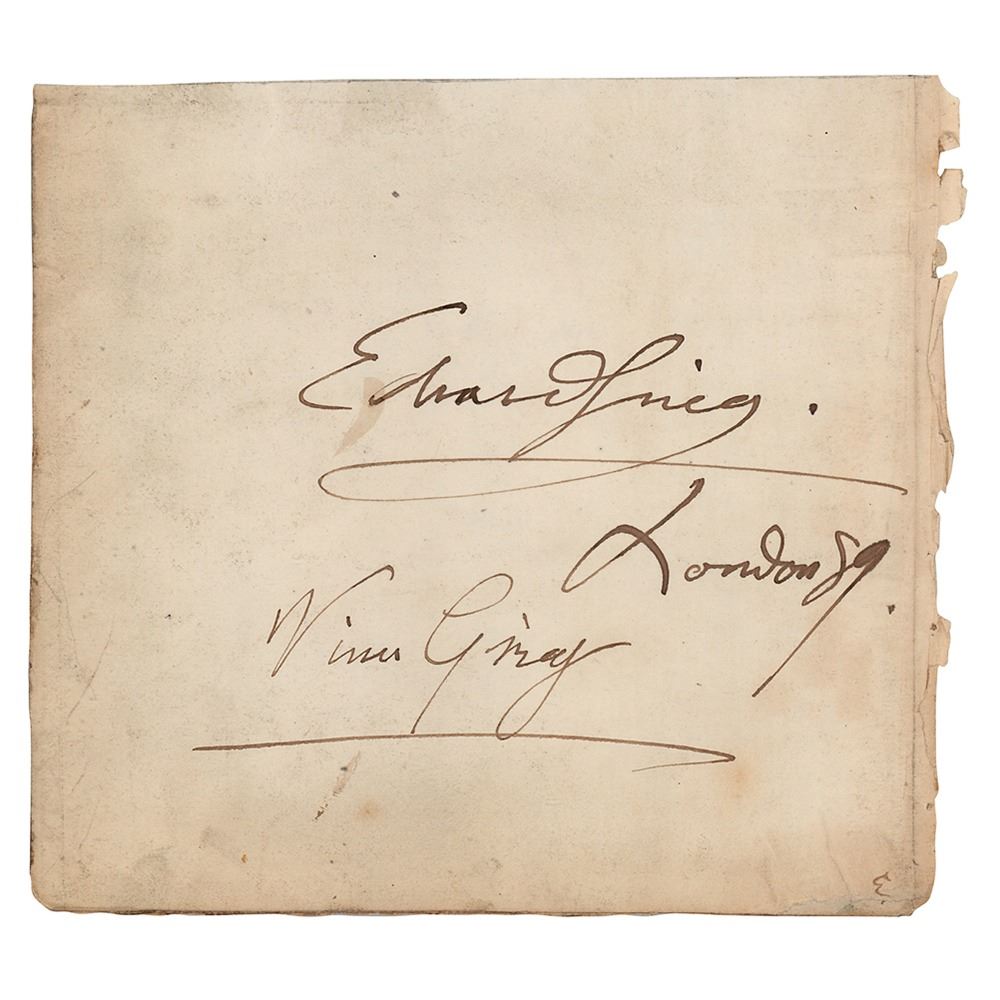 Edvard Grieg.
London 89.
Nina Grieg